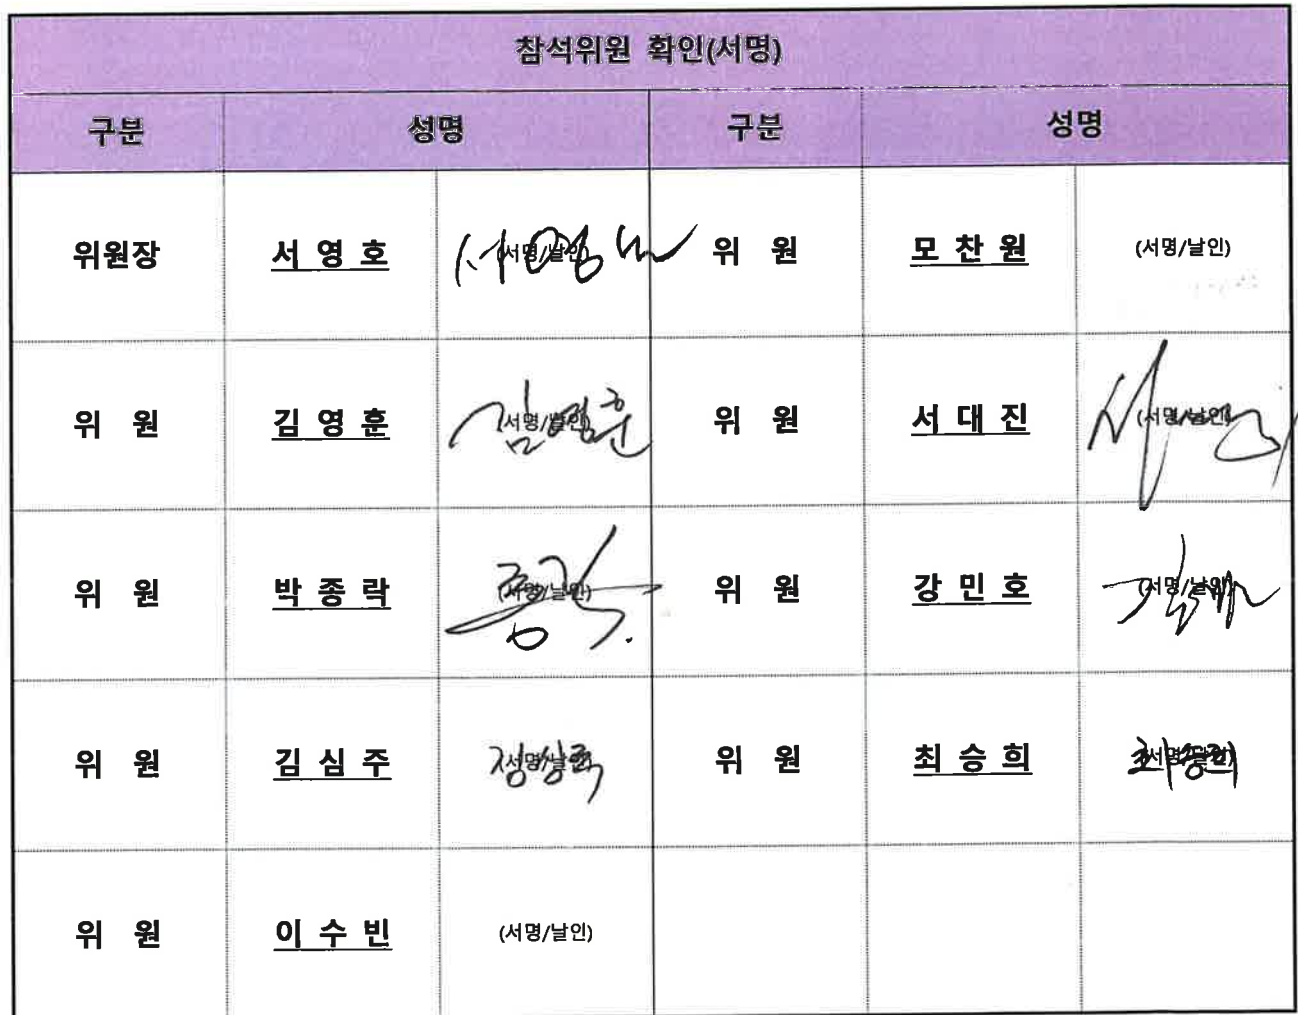 참석위원 확인(서명)
구분 성명 구분 성명
위원장 서 영 호 (서명/날인) 서영호 위 원 모 찬 원 (서명/날인)
위 원 김 영 훈 (서명/날인) 김영훈 위 원 서 대 진 (서명/날인)
위 원 박 종 락 (서명/날인) 위 원 강 민 호 (서명/날인)
위 원 김 심 주 (서명/날인) 위 원 최 승 희 (서명/날인) 최승희
위 원 이 수 빈 (서명/날인)